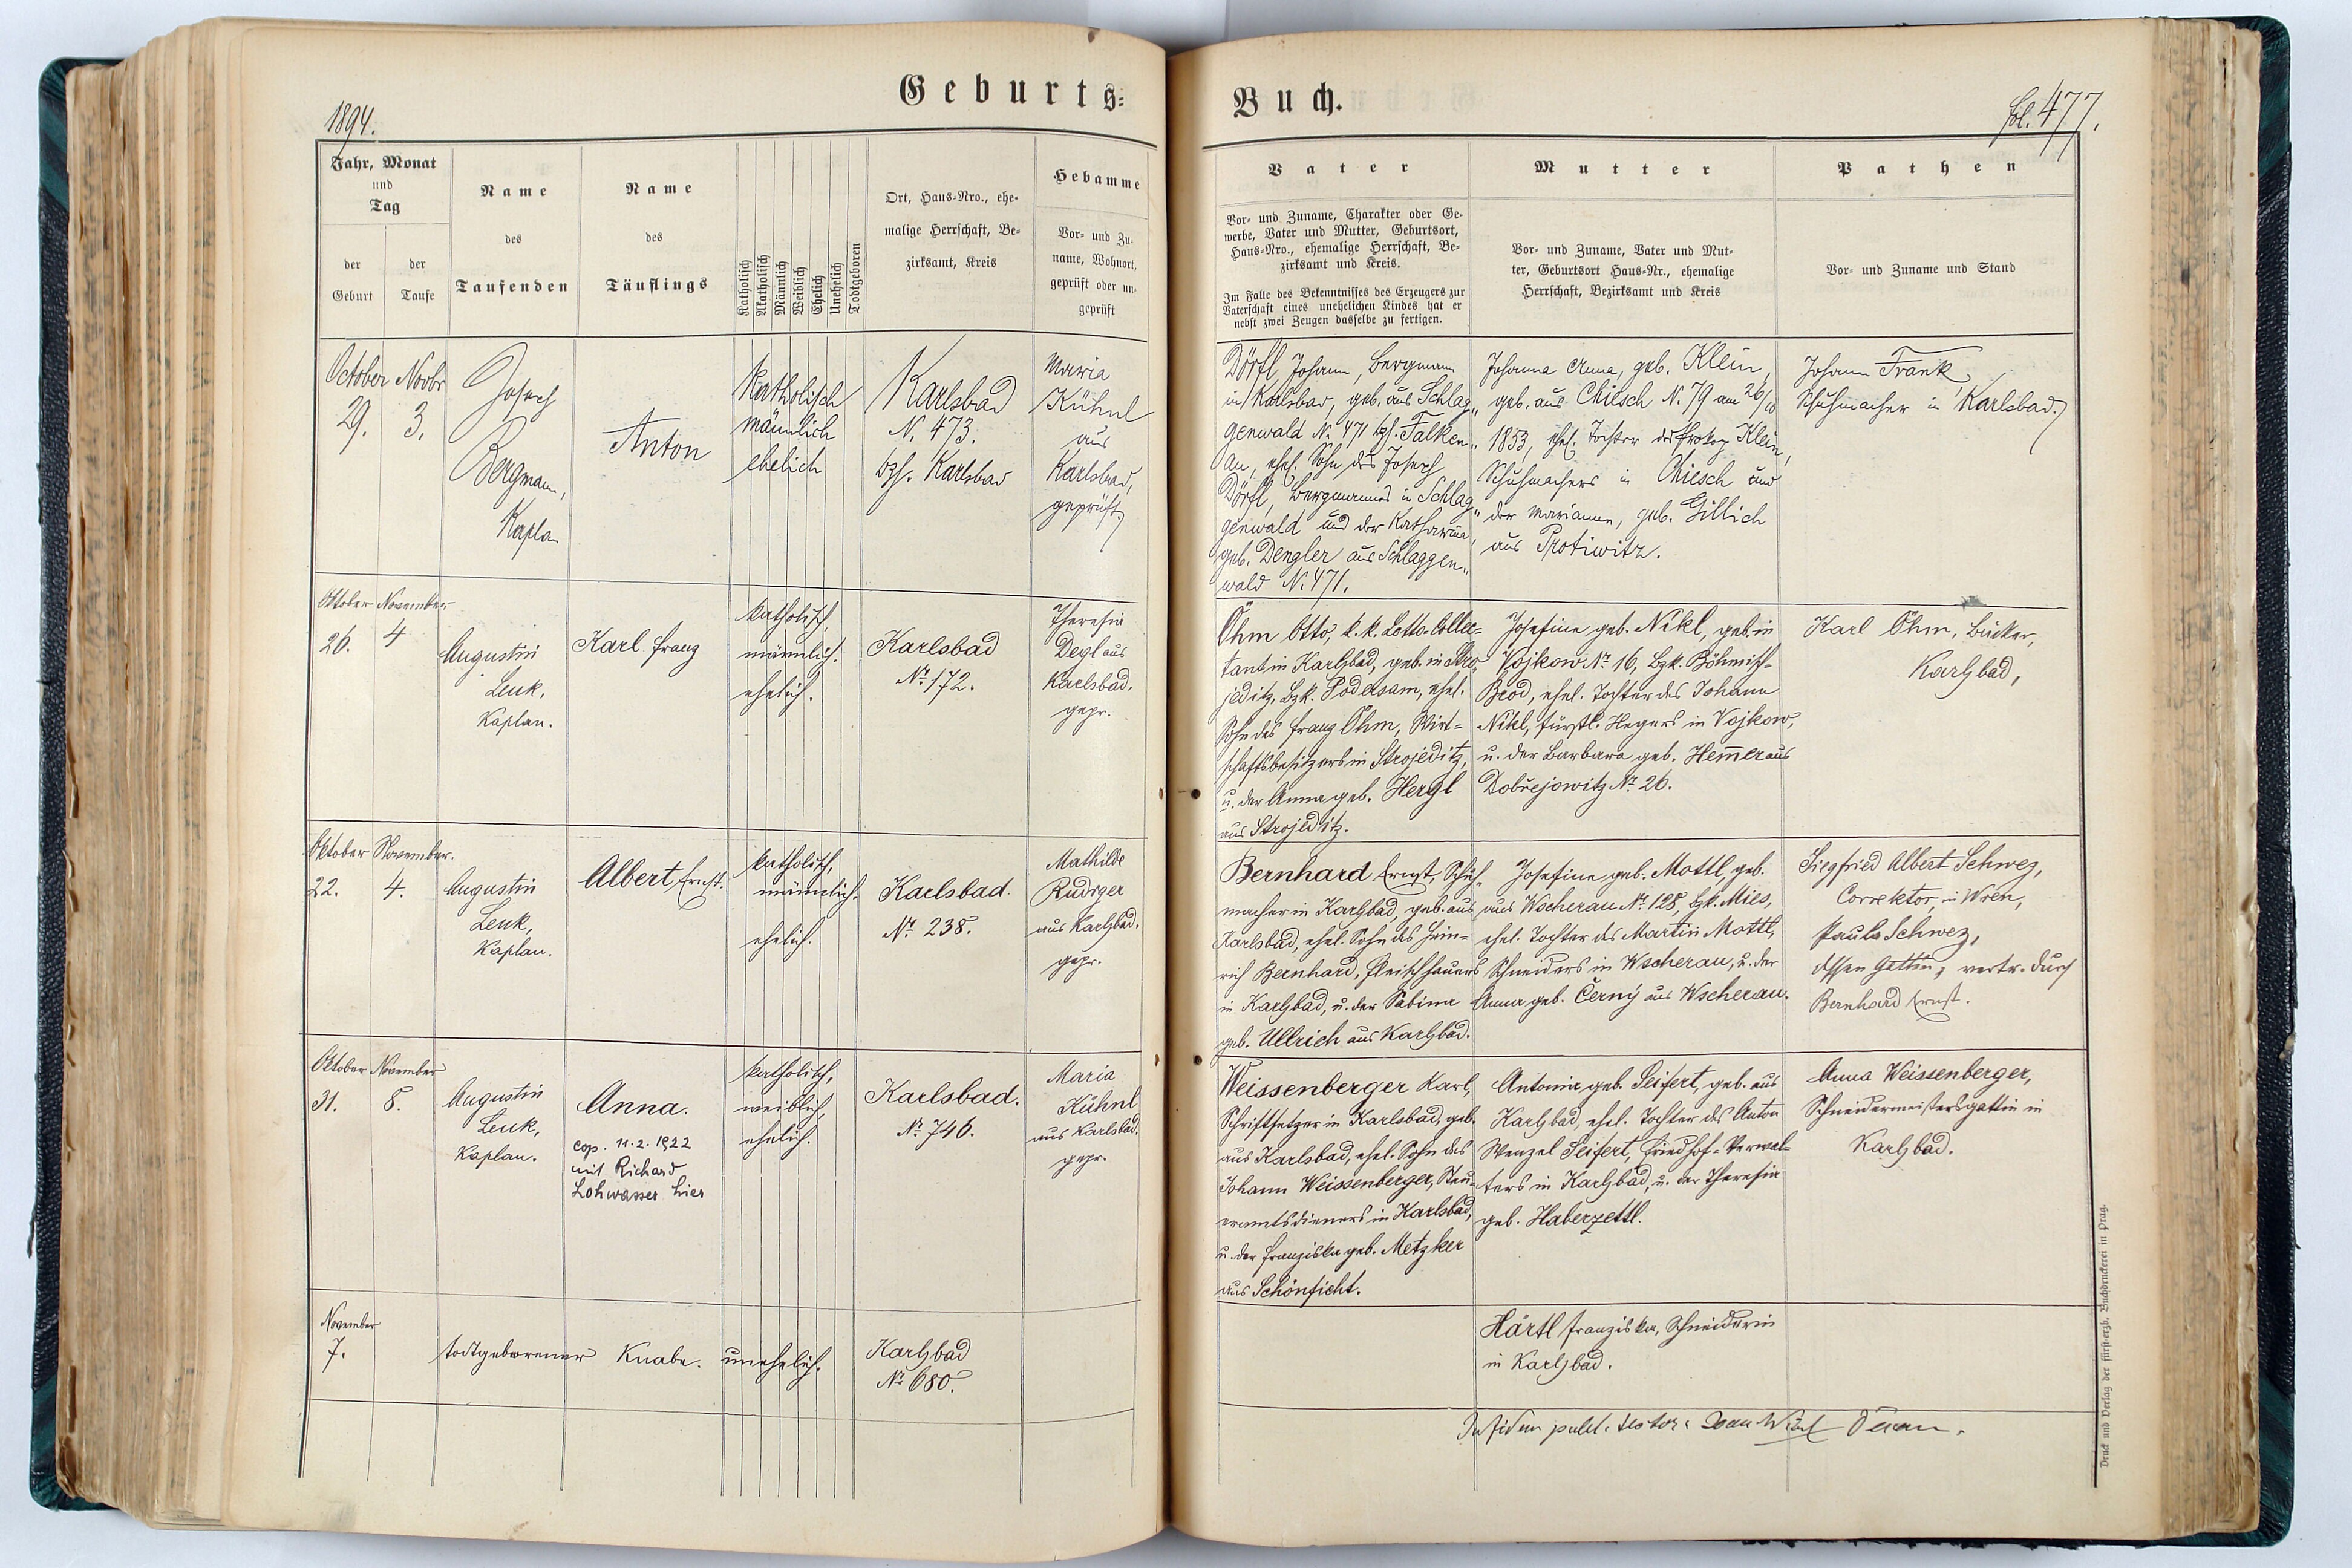 Geburts-
Buch.
1894.
fol. 477.
Jahr, Monat
und
Tag
der
Geburt
der
Taufe
Name
des
Taufenden
Name
des
Täuflings
Katholisch
Akatholisch
Männlich
Weiblich
Ehelich
Unehelich
Todtgeboren
Ort, Haus-Nro., ehe-
malige Herrschaft, Be-
zirksamt, Kreis
Hebamme
Vor- und Zu-
name, Wohnort,
geprüft oder un-
geprüft
Vater
Vor- und Zuname, Charakter oder Ge-
werbe, Vater und Mutter, Geburtsort,
Haus-Nro., ehemalige Herrschaft, Be-
zirksamt und Kreis.
Im Falle des Bekenntnisses des Erzeugers zur
Vaterschaft eines unehelichen Kindes hat er
nebst zwei Zeugen dasselbe zu fertigen.
Mutter
Vor- und Zuname, Vater und Mut-
ter, Geburtsort Haus-Nr., ehemalige
Herrschaft, Bezirksamt und Kreis
Pathen
Vor- und Zuname und Stand
October
29.
Novbr
3.
Josef
Bergmann,
Kaplan
Anton
Katholisch
männlich
ehelich
Karlsbad
N. 473.
bzh. Karlsbad
Maria
Kühnl
aus
Karlsbad,
geprüft.
Dörfl Johann, Bergmann
in Karlsbad, geb. aus Schlag„
genwald N. 471 bzh. Falken„
au, ehel. Sohn des Joseph
Dörfl, Bergmannes in Schlag„
genwald und der Katharina,
geb. Dengler aus Schlaggen„
wald N. 471.
Johanna Anna, geb. Klein,
geb. aus Chiesch N. 79 am 26/10
1853, ehel. Tochter des Prokop Klein,
Schuhmachers in Chiesch und
der Marianne, geb. Gillich
aus Protiwitz.
Johann Frank,
Schuhmacher in Karlsbad.
Oktober
26.
November
4
Augustin
Lenk,
Kaplan.
Karl Franz
katholisch,
männlich.
ehelich.
Karlsbad
Nr. 172.
Theresia
Degl aus
Karlsbad.
gepr.
Öhm Otto, k. k. Lotto-Collec=
tant in Karlsbad, geb. in Stro=
jeditz, Bzk. Podersam, ehel.
Sohn des Franz Öhm, Wirt=
schaftsbesitzers in Strojeditz,
u. der Anna geb. Hergl
aus Strojeditz.
Josefine geb. Nikl, geb. in
Vojkow Nr. 16, Bzk. Böhmisch-
Brod, ehel. Tochter des Johann
Nikl, fürstl. Hegers in Vojkow,
u. der Barbara geb. Hem̅er aus
Dobřejowitz Nr. 26.
Karl Öhm, Bäcker,
Karlsbad,
Oktober
22.
November.
4.
Augustin
Lenk,
Kaplan.
Albert Ernst.
katholisch,
männlich.
ehelich.
Karlsbad.
Nr. 238.
Mathilde
Rudrger
aus Karlsbad.
gepr.
Bernhard Ernst, Schuh-
macher in Karlsbad, geb. aus
Karlsbad, ehel. Sohn des Hein=
rich Bernhard, Fleischhauers
in Karlsbad, u. der Sabina
geb. Ullrich aus Karlsbad.
Josefine geb. Mottl, geb.
aus Wscherau Nr. 128, bzk. Mies,
ehel. Tochter des Martin Mottl,
Schneiders in Wscherau, u. der
Anna geb. Černý aus Wscherau.
Siegfried Albert Schwez,
Correktor in Wien,
Paula Schwez,
dessen Gattin, vertr. durch
Bernhard Ernst.
Oktober
31.
November
8.
Augustin
Lenk,
Kaplan.
Anna.
cop. 11.2.1922
mit Richard
Lohwasser hier
katholisch,
weiblich,
ehelich.
Karlsbad.
Nr. 746.
Maria
Kühnl
aus Karlsbad.
gepr.
Weissenberger Karl,
Schriftsetzer in Karlsbad, geb.
aus Karlsbad, ehel. Sohn des
Johann Weissenberger, Steu-
eramtsdieners in Karlsbad,
u. der Franziska geb. Metzker
aus Schönficht.
Antonia geb. Seifert, geb. aus
Karlsbad, ehel. Tochter des Anton
Wenzel Seifert, Friedhof-Verwal-
ters in Karlsbad, u. der Theresia
geb. Haberzettl.
Anna Weissenberger,
Schneidermeistersgattin in
Karlsbad.
November
7.
todtgeborener Knabe. unehelich.
Karlsbad
Nr. 680.
Härtl Franziska, Schneiderin
in Karlsbad.
In fidem publ. testor:
Druck und Verlag der fürst-erzb. Buchdruckerei in Prag.